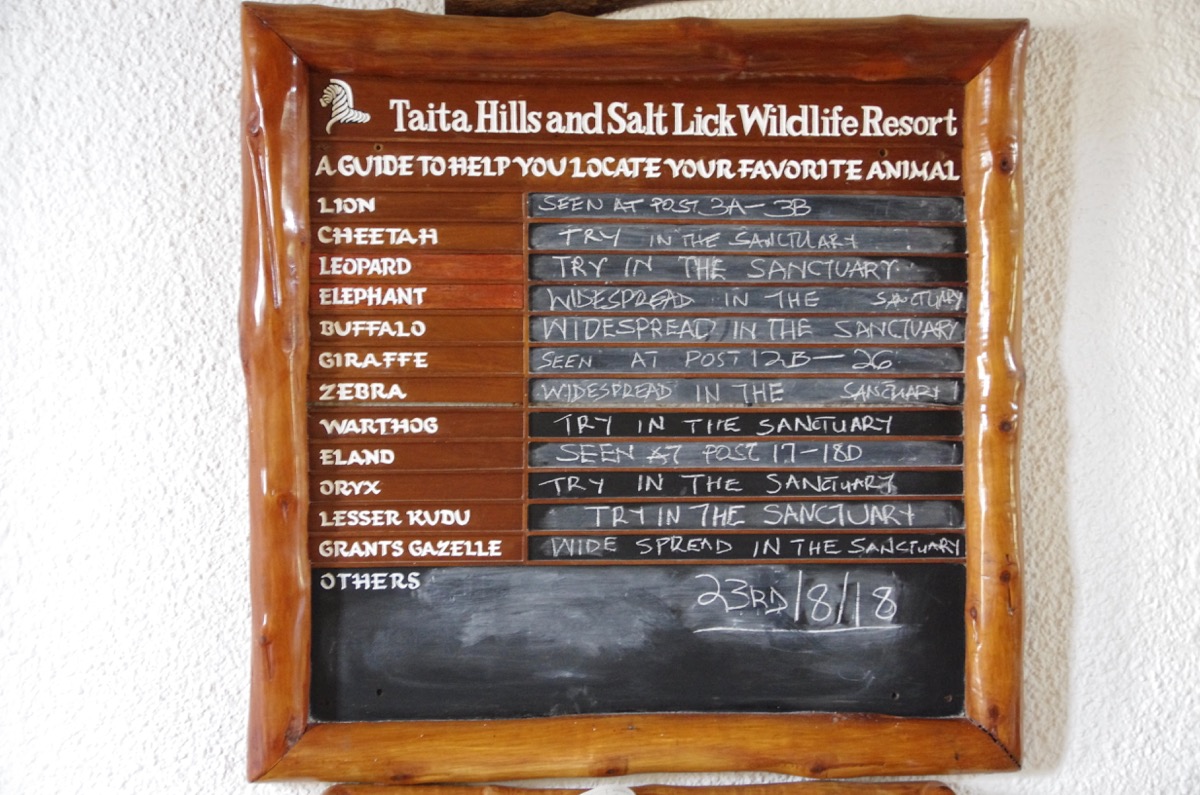 Taita Hills and Salt Lick Wildlife Resort
A GUIDE TO HELP YOU LOCATE YOUR FAVORITE ANIMAL
LION SEEN AT POST 3A-3B
CHEETAH TRY IN THE SANCTUARY
LEOPARD TRY IN THE SANCTUARY
ELEPHANT WIDESPREAD IN THE SANCTUARY
BUFFALO WIDESPREAD IN THE SANCTUARY
GIRAFFE SEEN AT POST 12B-26
ZEBRA WIDESPREAD IN THE SANCTUARY
WARTHOG TRY IN THE SANCTUARY
ELAND SEEN AT POST 17-18D
ORYX TRY IN THE SANCTUARY
LESSER KUDU TRY IN THE SANCTUARY
GRANTS GAZELLE WIDE SPREAD IN THE SANCTUARY
OTHERS 23RD/8/18